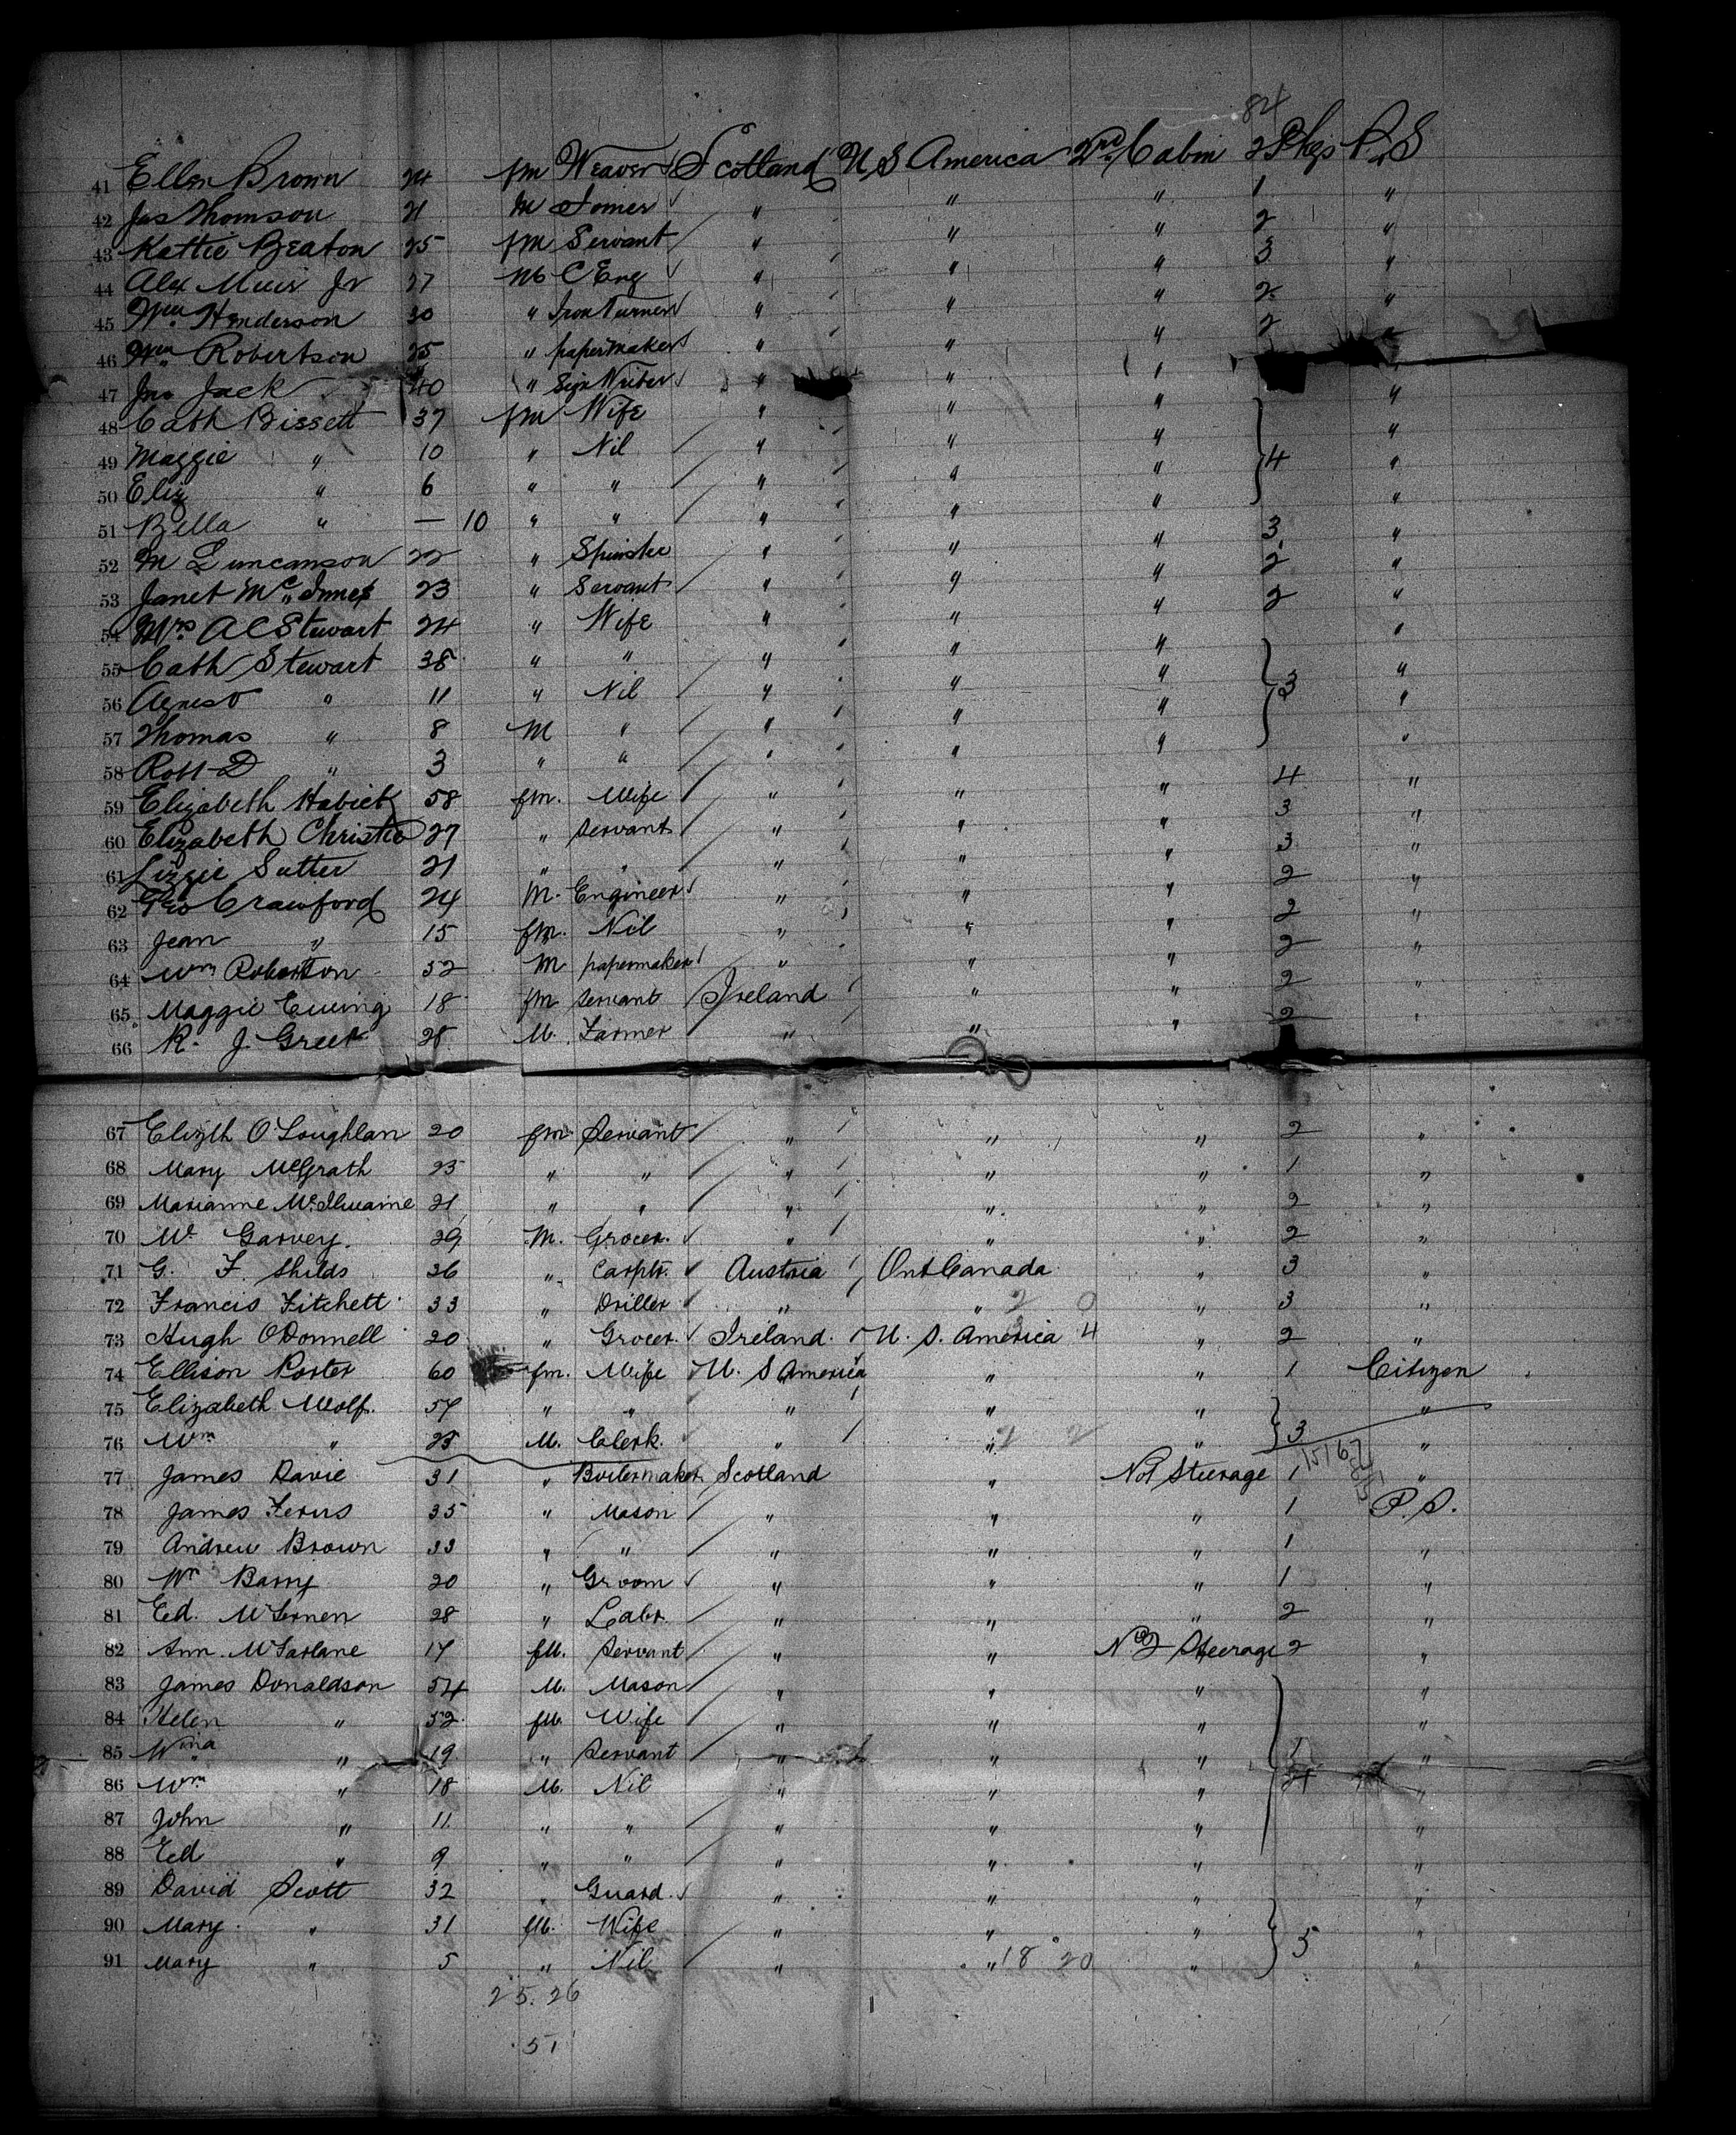 84
41 Ellen Brown 24 fm Weaver Scotland U S America 2nd Cabin 2 Pkgs P. S
42 Jas Thomson 21 M Joiner " " " 1 "
43 Kattie Beaton 25 fm Servant " " " 2 "
44 Alex Muir Jr 27 M C Eng " " " 3 "
45 Wm Henderson 30 " Iron Turner " " " 2 "
46 Wm Robertson 25 " papermaker " " " 2
47 Jno Jack 40 " Sign Writer " " "
48 Cath Bissett 37 fm Wife " " " "
49 Maggie " 10 " Nil " " " 4 "
50 Eliz " 6 " " " " " "
51 Bella " — 10 " " " " " "
52 M Luncanson 22 " Spinster " " " 3 "
53 Janet Mc Innes 23 " Servant " " " 2 "
54 Mrs A C Stewart 24 " Wife " " " 2 "
55 Cath Stewart 38 " " " " " "
56 Agnes " 11 " Nil " " " 3 "
57 Thomas " 8 M " " " " "
58 Robt D " 3 " " " " " "
59 Elizabeth 58 fm. Wife " " " 4 "
60 Elizabeth Christie 27 " Servant " " " 3 "
61 Lizzie Sutter 21 " " " " " 3 "
62 Geo Crawford 24 M. Engineer " " " 2 "
63 Jean " 15 fm. Nil " " " 2 "
64 Wm Robertson 32 M papermaker " " " 2 "
65 Maggie Ewing 18 fm Servant Ireland " " 2 "
66 R. J. Greer 28 M. Farmer " " " 2 "
67 Elizth O'Loughlan 20 fm Servant " " " 2 "
68 Mary McGrath 25 " " " " " 1 "
69 Marianne McIlwaine 21 " " " " " 2 "
70 W. Garvey 29 M. Grocer. " " " 2 "
71 G. F. Shilds 26 " Carptr. Austria Ont Canada " 3 "
72 Francis Fitchett 33 " Driller " " 2 0 " 3 "
73 Hugh O'Donnell 20 " Grocer. Ireland. U. S. America 4 " 2 "
74 Ellison Porter 60 fm. Wife U. S America " " 1 Citizen
75 Elizabeth Wolf. 57 " " " " " "
76 Wm " 25 M. Clerk. " " 2 2 " 3 "
77 James Davie 31 " Boilermaker Scotland " No1 Steerage 1 "
78 James Ferus 35 " Mason " " " 1 P. S.
79 Andrew Brown 33 " " " " " 1 "
80 Wm Barry 20 " Groom " " " 1 "
81 Ed. 28 " Labr. " " " 2 "
82 Ann. McFarlane 17 fM. Servant " " No2 Steerage 2 "
83 James Donaldson 54 M. Mason " " " "
84 Helen " 52 fM. Wife " " " "
85 Wina " 19 " Servant " " " "
86 Wm " 18 M. Nil " " " "
87 John " 11. " " " " " "
88 Ed " 9 " " " " " "
89 David Scott 32 " Guard. " " " "
90 Mary " 31 fM. Wife " " " 5 "
91 Mary " 5 " Nil " " 18 20 " "
25. 26
51